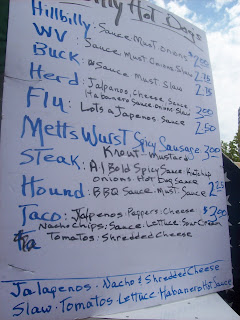 Hillbilly Hot Dogs
Hillbilly: Sauce Must Onions
WV: Sauce Must Onions Slaw 2.75
Buck: Sauce Must Slaw
Herd: Jalpenos, Cheese, Sauce, 2.75
Habanero Sauce Onions Slaw 3.00
Flu: Lots a Japenos Sauce 2.50
Metts Wurst Spicy Sausage 3.00
Kraut - Mustard
Steak: A1 Bold Spicy Sauce Kechup
Onions Hot Dog Sauce
Hound: BBQ Sauce Must: Sauce 2.25
Taco: Jalpenos Peppers: Cheese $3.00
Nacho Chips: Sauce: Lettuce: Sour Cream
Tomatos: Shredded Cheese
Jalapenos: Nacho & Shredded Cheese
Slaw: Tomatos: Lettuce: Habanero Hot Sauce